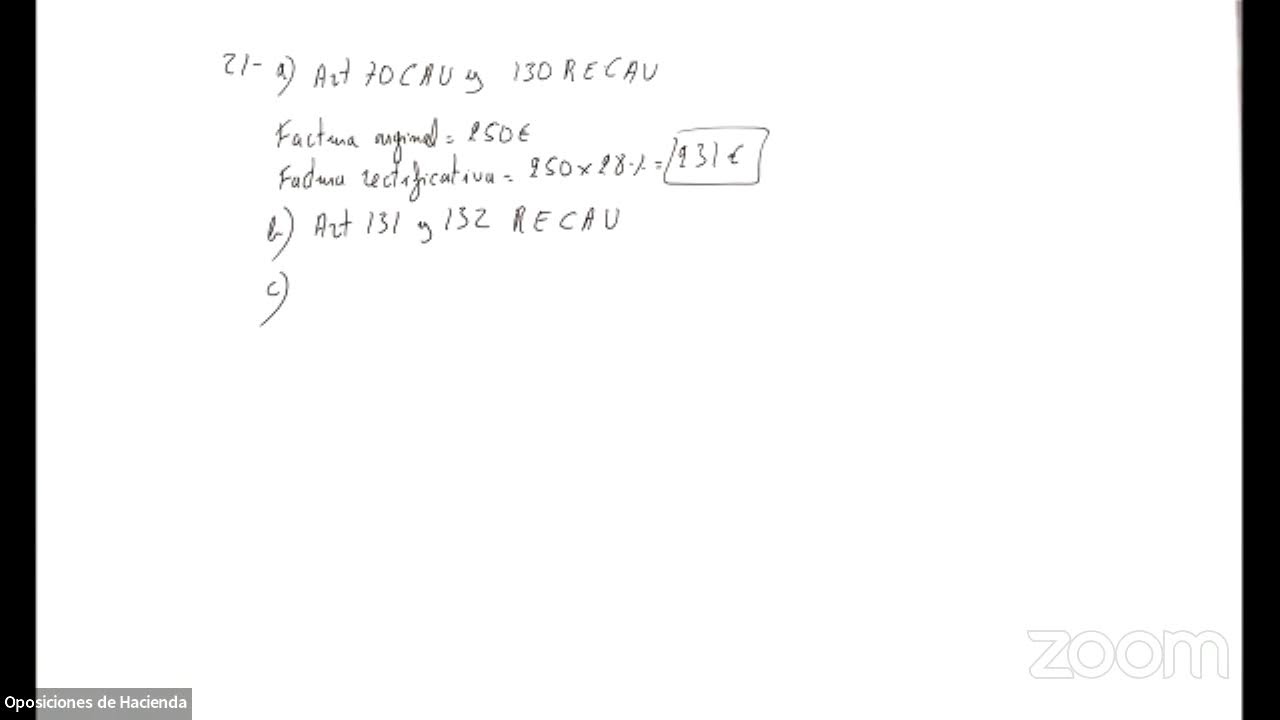 21- a) Art 70 CAU y 130 RECAU
Factura original = 250€
Factura rectificativa = 250 x 28% = 231€
b) Art 131 y 132 RECAU
c)
zoom
Oposiciones de Hacienda